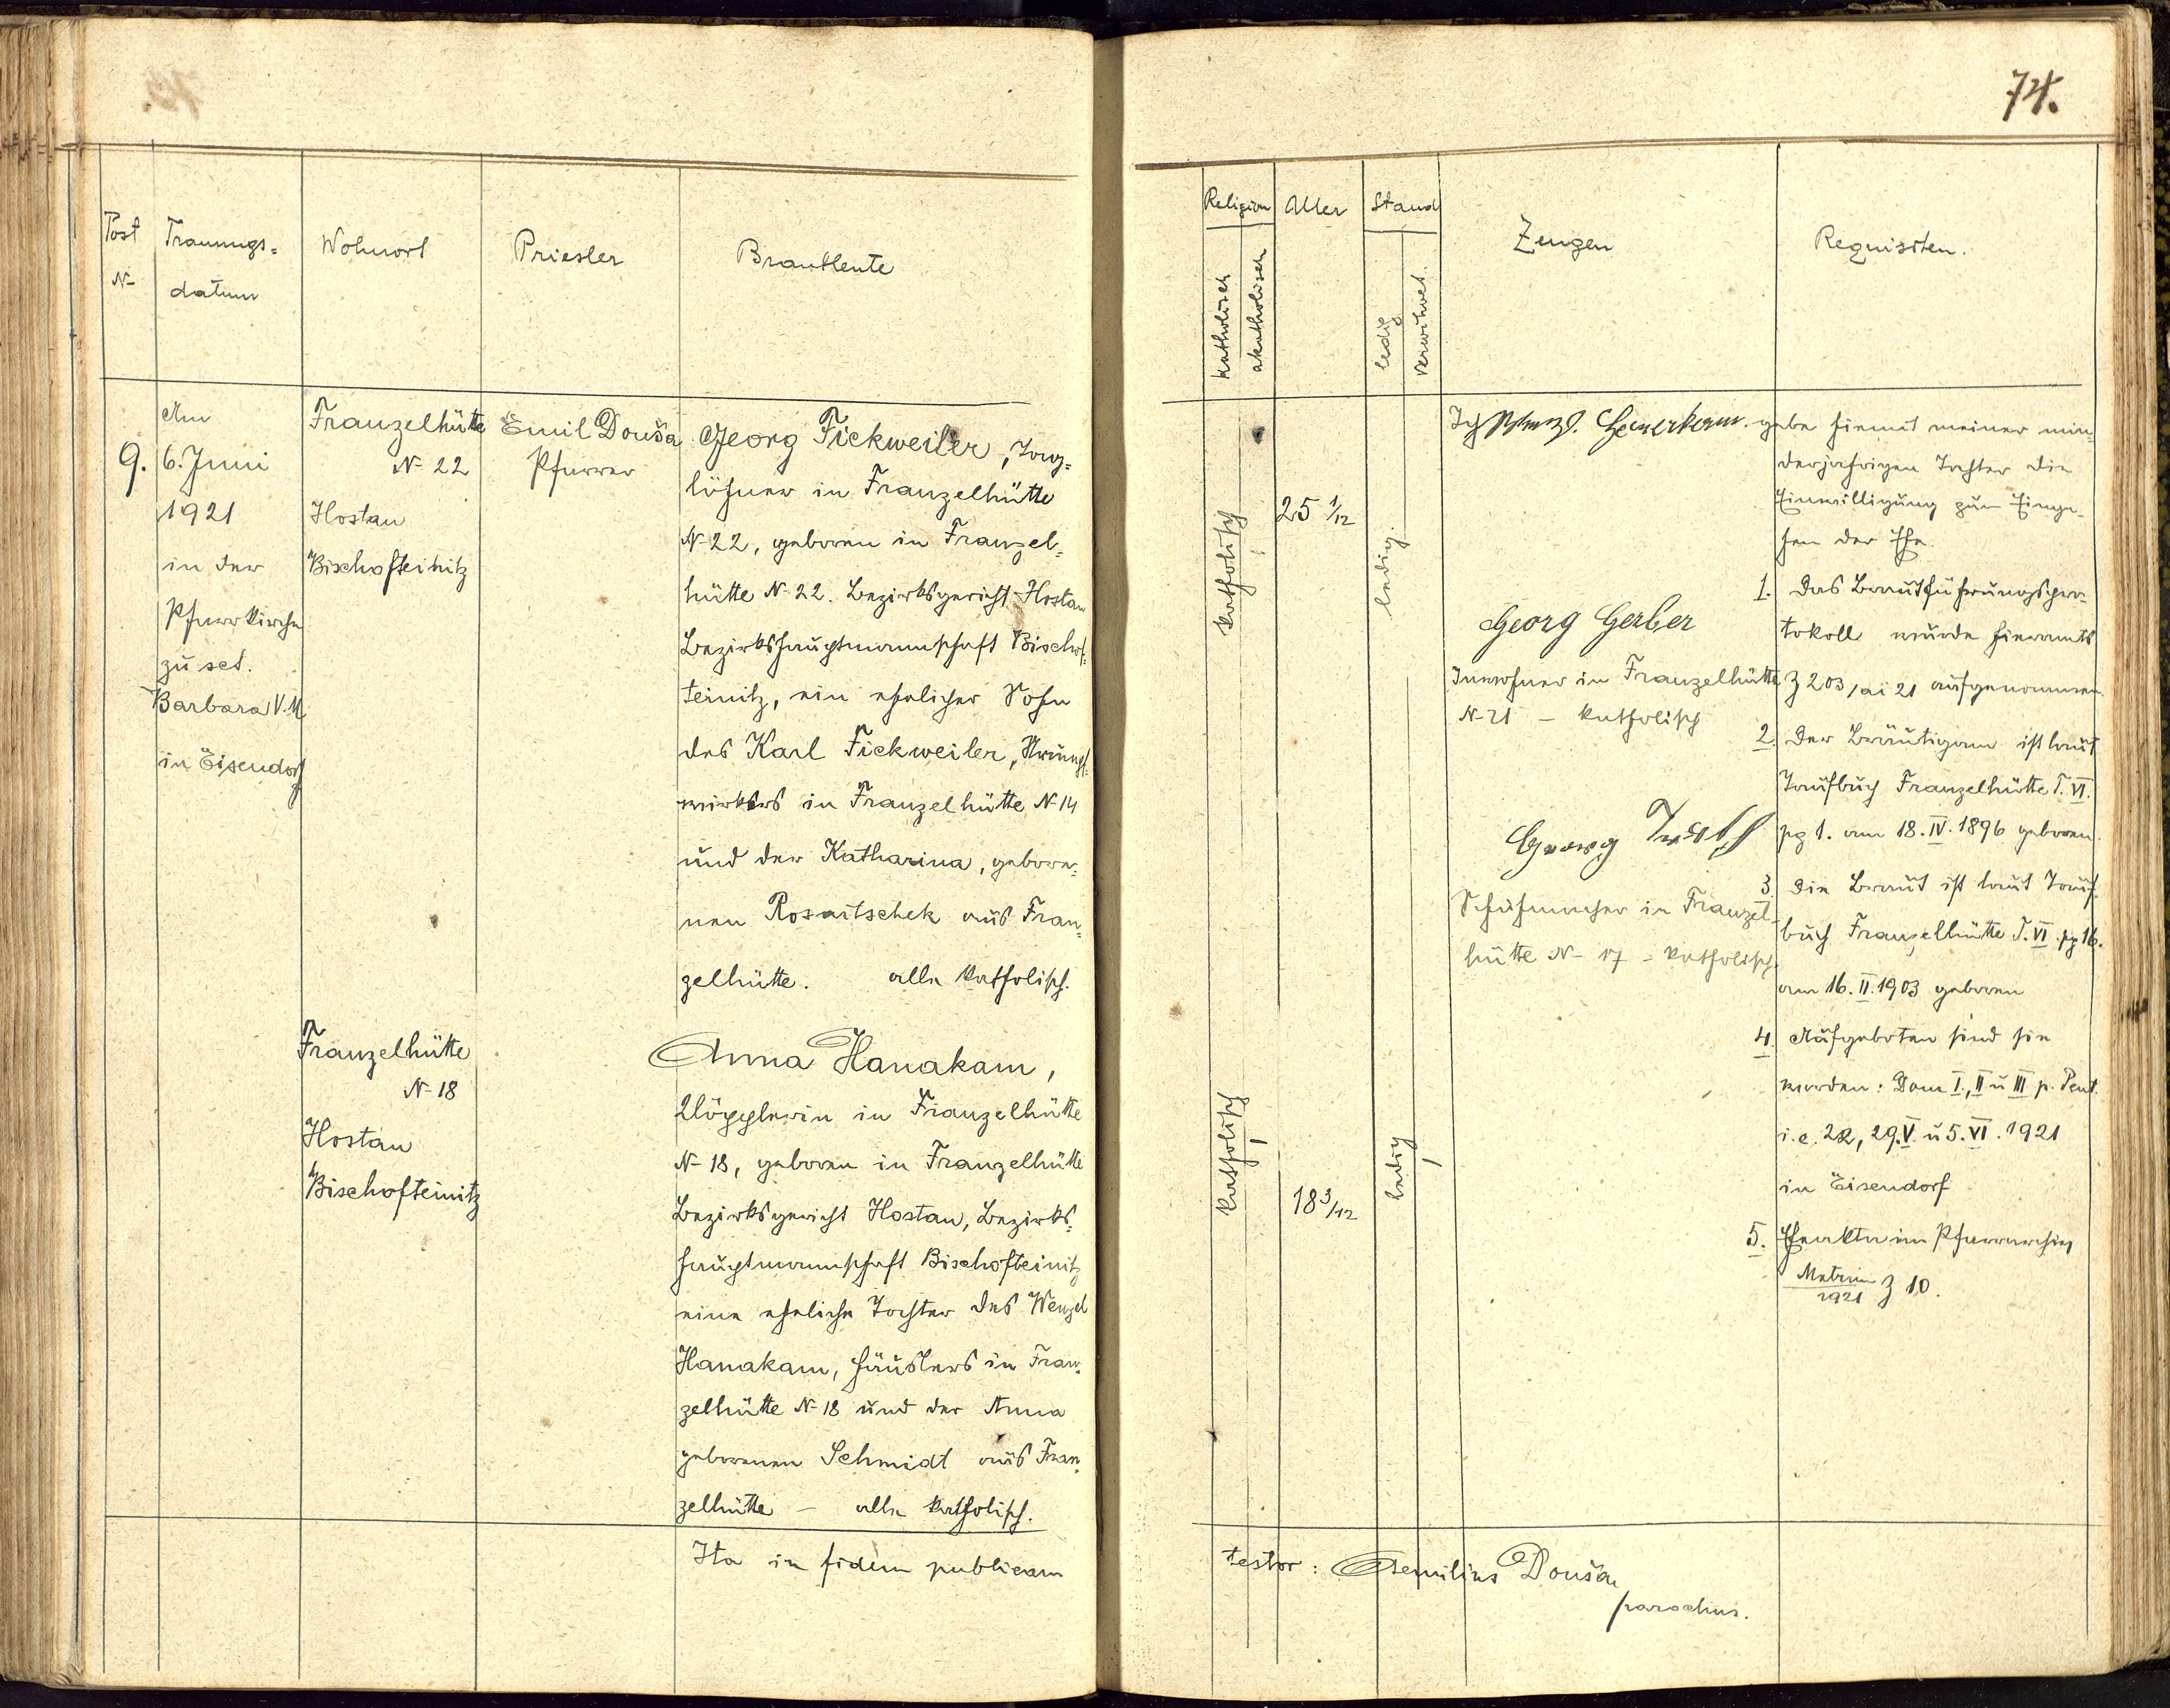 74.
Post
N-
Trauungs-
datum
Wohnort
Priester
Brautleute
9.
Am
6. Juni
1921
in der
Pfarrkirche
zu sct.
Barbara V. M
in Eisendorf
Franzelhütte
N- 22
Hostau
Bischofteinitz
Emil Douša
Pfarrer
Georg Fickweiler, Tag-
löhner in Franzelhütte
N- 22, geboren in Franzel-
hütte N- 22. Bezirksgericht Hostau
Bezirkshauptmannschaft Bischof-
teinitz, ein ehelicher Sohn
des Karl Fickweiler, Strumpf-
wirkers in Franzelhütte N- 14
und der Katharina, gebore-
nen Rosaitschek aus Fran-
zelhütte. alle katholisch.
Franzelhütte
N- 18
Hostau
Bischofteinitz
Anna Hanakam,
Klöpplerin in Franzelhütte
N- 18, geboren in Franzelhütte
Bezirksgericht Hostau, Bezirks-
hauptmannschaft Bischofteinitz
eine eheliche Tochter des Wenzel
Hanakam, Häuslers in Fran-
zelhütte N- 18 und der Anna
geborenen Schmidt aus Fran-
zelhütte – alle katholisch.
Ita in fidem publicam
Religion
katholisch
akatholisch
Alter
Stand
ledig
verwitwet
Zeugen
Requisiten.
katholisch
25 1/12
ledig
katholisch
18 3/12
ledig
Ich gebe hiemit meiner min-
derjährigen Tochter die
Einwilligung zum Einge-
hen der Ehe.
Georg Gerber
Inwohner in Franzelhütte
N- 21 – katholisch
Georg
Schuhmacher in Franzel-
hütte N- 17 – katholisch
1. Das Brautführungspro-
tokoll wurde hieramts
Z 203 / ai 21 aufgenommen.
2. Der Bräutigam ist laut
Taufbuch Franzelhütte T. VI.
pg 1. am 18. IV. 1896 geboren.
3 Die Braut ist laut Tauf-
buch Franzelhütte T. VI pg 16.
am 16. II. 1903 geboren
4 Aufgeboten sind sie
worden: Dom I., II u III p. Pent.
i. e. 22, 29. V. u 5. VI. 1921
in Eisendorf
5. Eheakte im Pfarrarchiv
Matrim
1921 Z 10.
testor: Aemilius Douša,
parochus.